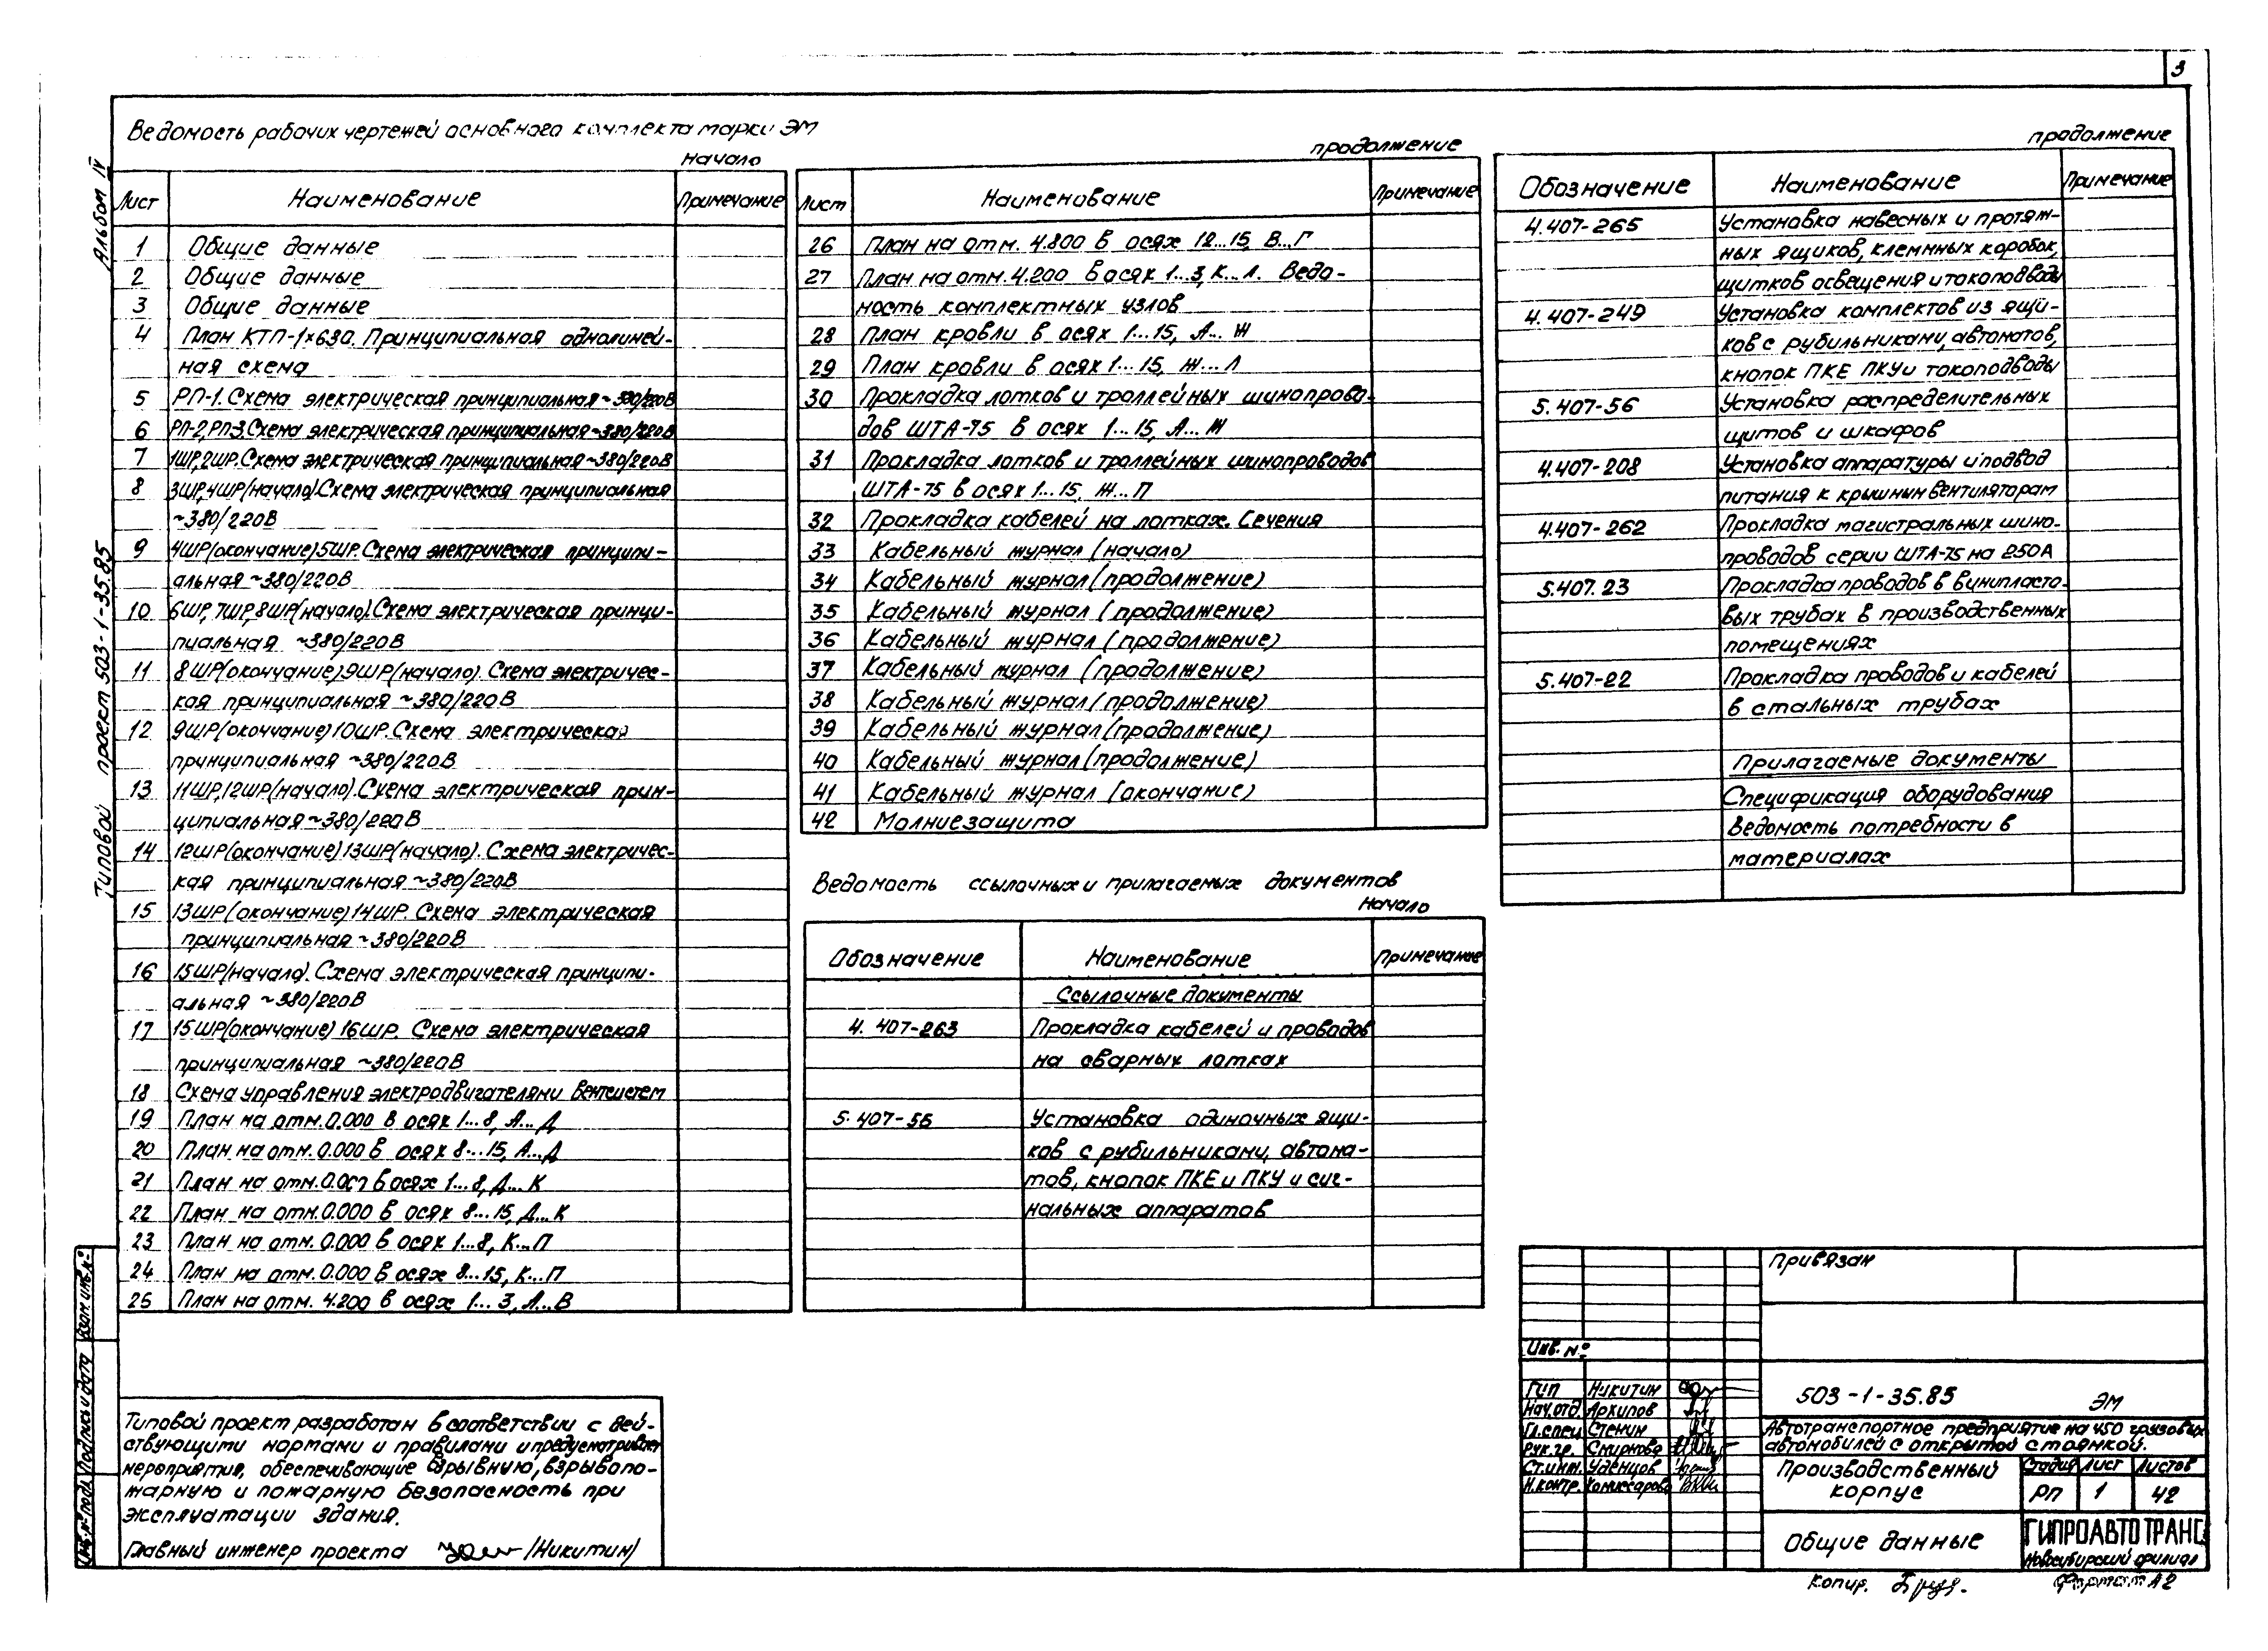 3
Альбом IV
Типовой проект 503-1-35.85
Ведомость рабочих чертежей основного комплекта марки ЭМ
начало
Лист Наименование Примечание
1 Общие данные
2 Общие данные
3 Общие данные
4 План КТП-1×630. Принципиальная однолиней-
ная схема
5 РП-1. Схема электрическая принципиальная ~380/220В
6 РП-2, РП-3. Схема электрическая принципиальная ~380/220В
7 1ШР, 2ШР. Схема электрическая принципиальная ~380/220В
8 3ШР, 4ШР (начало). Схема электрическая принципиальная
~380/220В
9 4ШР (окончание) 5ШР. Схема электрическая принципи-
альная ~380/220В
10 6ШР, 7ШР, 8ШР (начало). Схема электрическая принци-
пиальная ~380/220В
11 8ШР (окончание) 9ШР (начало). Схема электричес-
кая принципиальная ~380/220В
12 9ШР (окончание) 10ШР. Схема электрическая
принципиальная ~380/220В
13 11ШР, 12ШР (начало). Схема электрическая прин-
ципиальная ~380/220В
14 12ШР (окончание) 13ШР (начало). Схема электричес-
кая принципиальная ~380/220В
15 13ШР (окончание) 14ШР. Схема электрическая
принципиальная ~380/220В
16 15ШР (начало). Схема электрическая принципи-
альная ~380/220В
17 15ШР (окончание) 16ШР. Схема электрическая
принципиальная ~380/220В
18 Схема управления электродвигателями вентсистем
19 План на отм. 0.000 в осях 1...8, А...Д
20 План на отм. 0.000 в осях 8...15, А...Д
21 План на отм. 0.000 в осях 1...8, Д...К
22 План на отм. 0.000 в осях 8...15, Д...К
23 План на отм. 0.000 в осях 1...8, К...П
24 План на отм. 0.000 в осях 8...15, К...П
25 План на отм. 4.200 в осях 1...3, А...В
продолжение
Лист Наименование Примечание
26 План на отм. 4.800 в осях 12...15, В...Г
27 План на отм. 4.200 в осях 1...3, К...Л. Ведо-
мость комплектных узлов
28 План кровли в осях 1...15, А...Ж
29 План кровли в осях 1...15, Ж...Л
30 Прокладка лотков и троллейных шинопрово-
дов ШТА-75 в осях 1...15, А...Ж
31 Прокладка лотков и троллейных шинопроводов
ШТА-75 в осях 1...15, Ж...П
32 Прокладка кабелей на лотках. Сечения
33 Кабельный журнал (начало)
34 Кабельный журнал (продолжение)
35 Кабельный журнал (продолжение)
36 Кабельный журнал (продолжение)
37 Кабельный журнал (продолжение)
38 Кабельный журнал (продолжение)
39 Кабельный журнал (продолжение)
40 Кабельный журнал (продолжение)
41 Кабельный журнал (окончание)
42 Молниезащита
Ведомость ссылочных и прилагаемых документов
начало
Обозначение Наименование Примечание
Ссылочные документы
4.407-263 Прокладка кабелей и проводов
на сварных лотках
5.407-55 Установка одиночных ящи-
ков с рубильниками, автома-
тов, кнопок ПКЕ и ПКУ и сиг-
нальных аппаратов
продолжение
Обозначение Наименование Примечание
4.407-265 Установка навесных и протяж-
ных ящиков, клеммных коробок,
щитков освещения и токоподводы
4.407-249 Установка комплектов из ящи-
ков с рубильниками, автоматов,
кнопок ПКЕ ПКУ и токоподводы
5.407-56 Установка распределительных
щитов и шкафов
4.407-208 Установка аппаратуры и подвод
питания к крышным вентиляторам
4.407-262 Прокладка магистральных шино-
проводов серии ШТА-75 на 250А
5.407.23 Прокладка проводов в винипласто-
вых трубах в производственных
помещениях
5.407-22 Прокладка проводов и кабелей
в стальных трубах
Прилагаемые документы
Спецификация оборудования
Ведомость потребности в
материалах
Типовой проект разработан в соответствии с дей-
ствующими нормами и правилами и предусматривает
мероприятия, обеспечивающие взрывную, взрывопо-
жарную и пожарную безопасность при
эксплуатации здания.
Главный инженер проекта /Никитин/
Взам. инв. №
Подпись и дата
Инв. № подл.
Привязан
Инв. №
ГИП Никитин
Нач. отд. Архипов
Гл. спец. Стенин
Рук. гр. Смирнова
Ст. инж. Уденцов
Н. контр. Комиссарова
503-1-35.85 ЭМ
Автотранспортное предприятие на 450 грузовых
автомобилей с открытой стоянкой.
Производственный
корпус
Стадия Лист Листов
РП 1 42
Общие данные
ГИПРОАВТОТРАНС
Новосибирский филиал
Копир. Формат А2